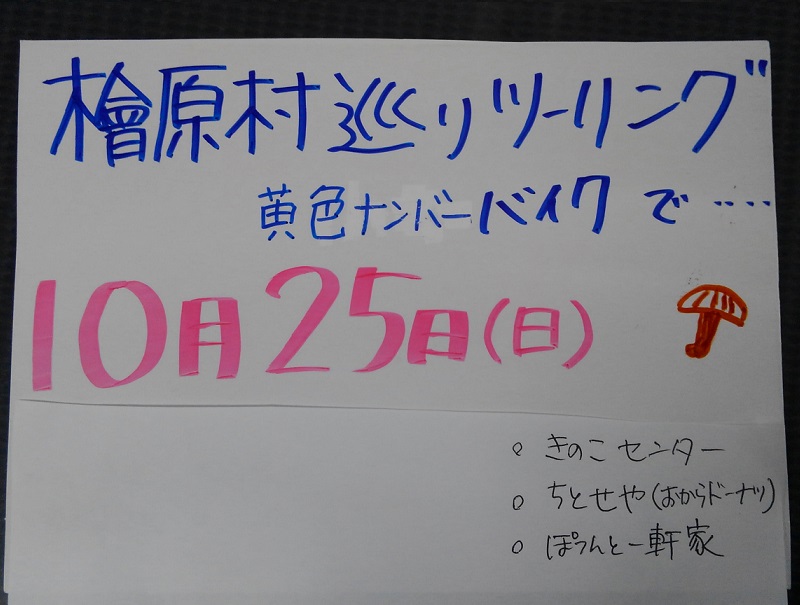 檜原村巡りツーリング
黄色ナンバーバイクで‥‥
10月25日(日)
○ きのこセンター
○ ちとせや(おからドーナツ)
○ ぽつんと一軒家